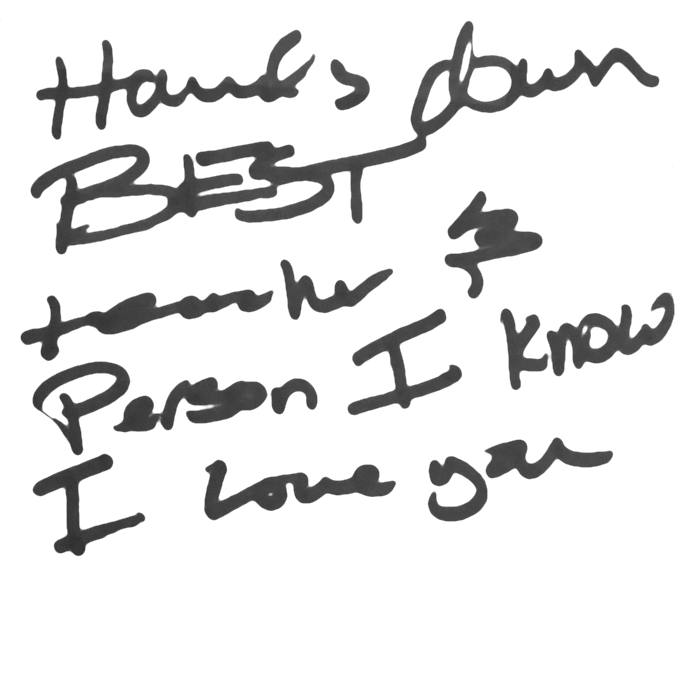 Hands down
BEST
teacher &
Person I know
I love you